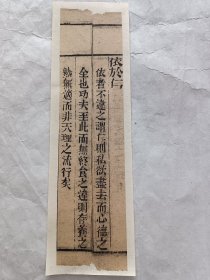 依於仁
依者不違之謂仁則私欲盡去而心德之
全也功夫至此而無終食之違則存養之
熟無適而非天理之流行矣